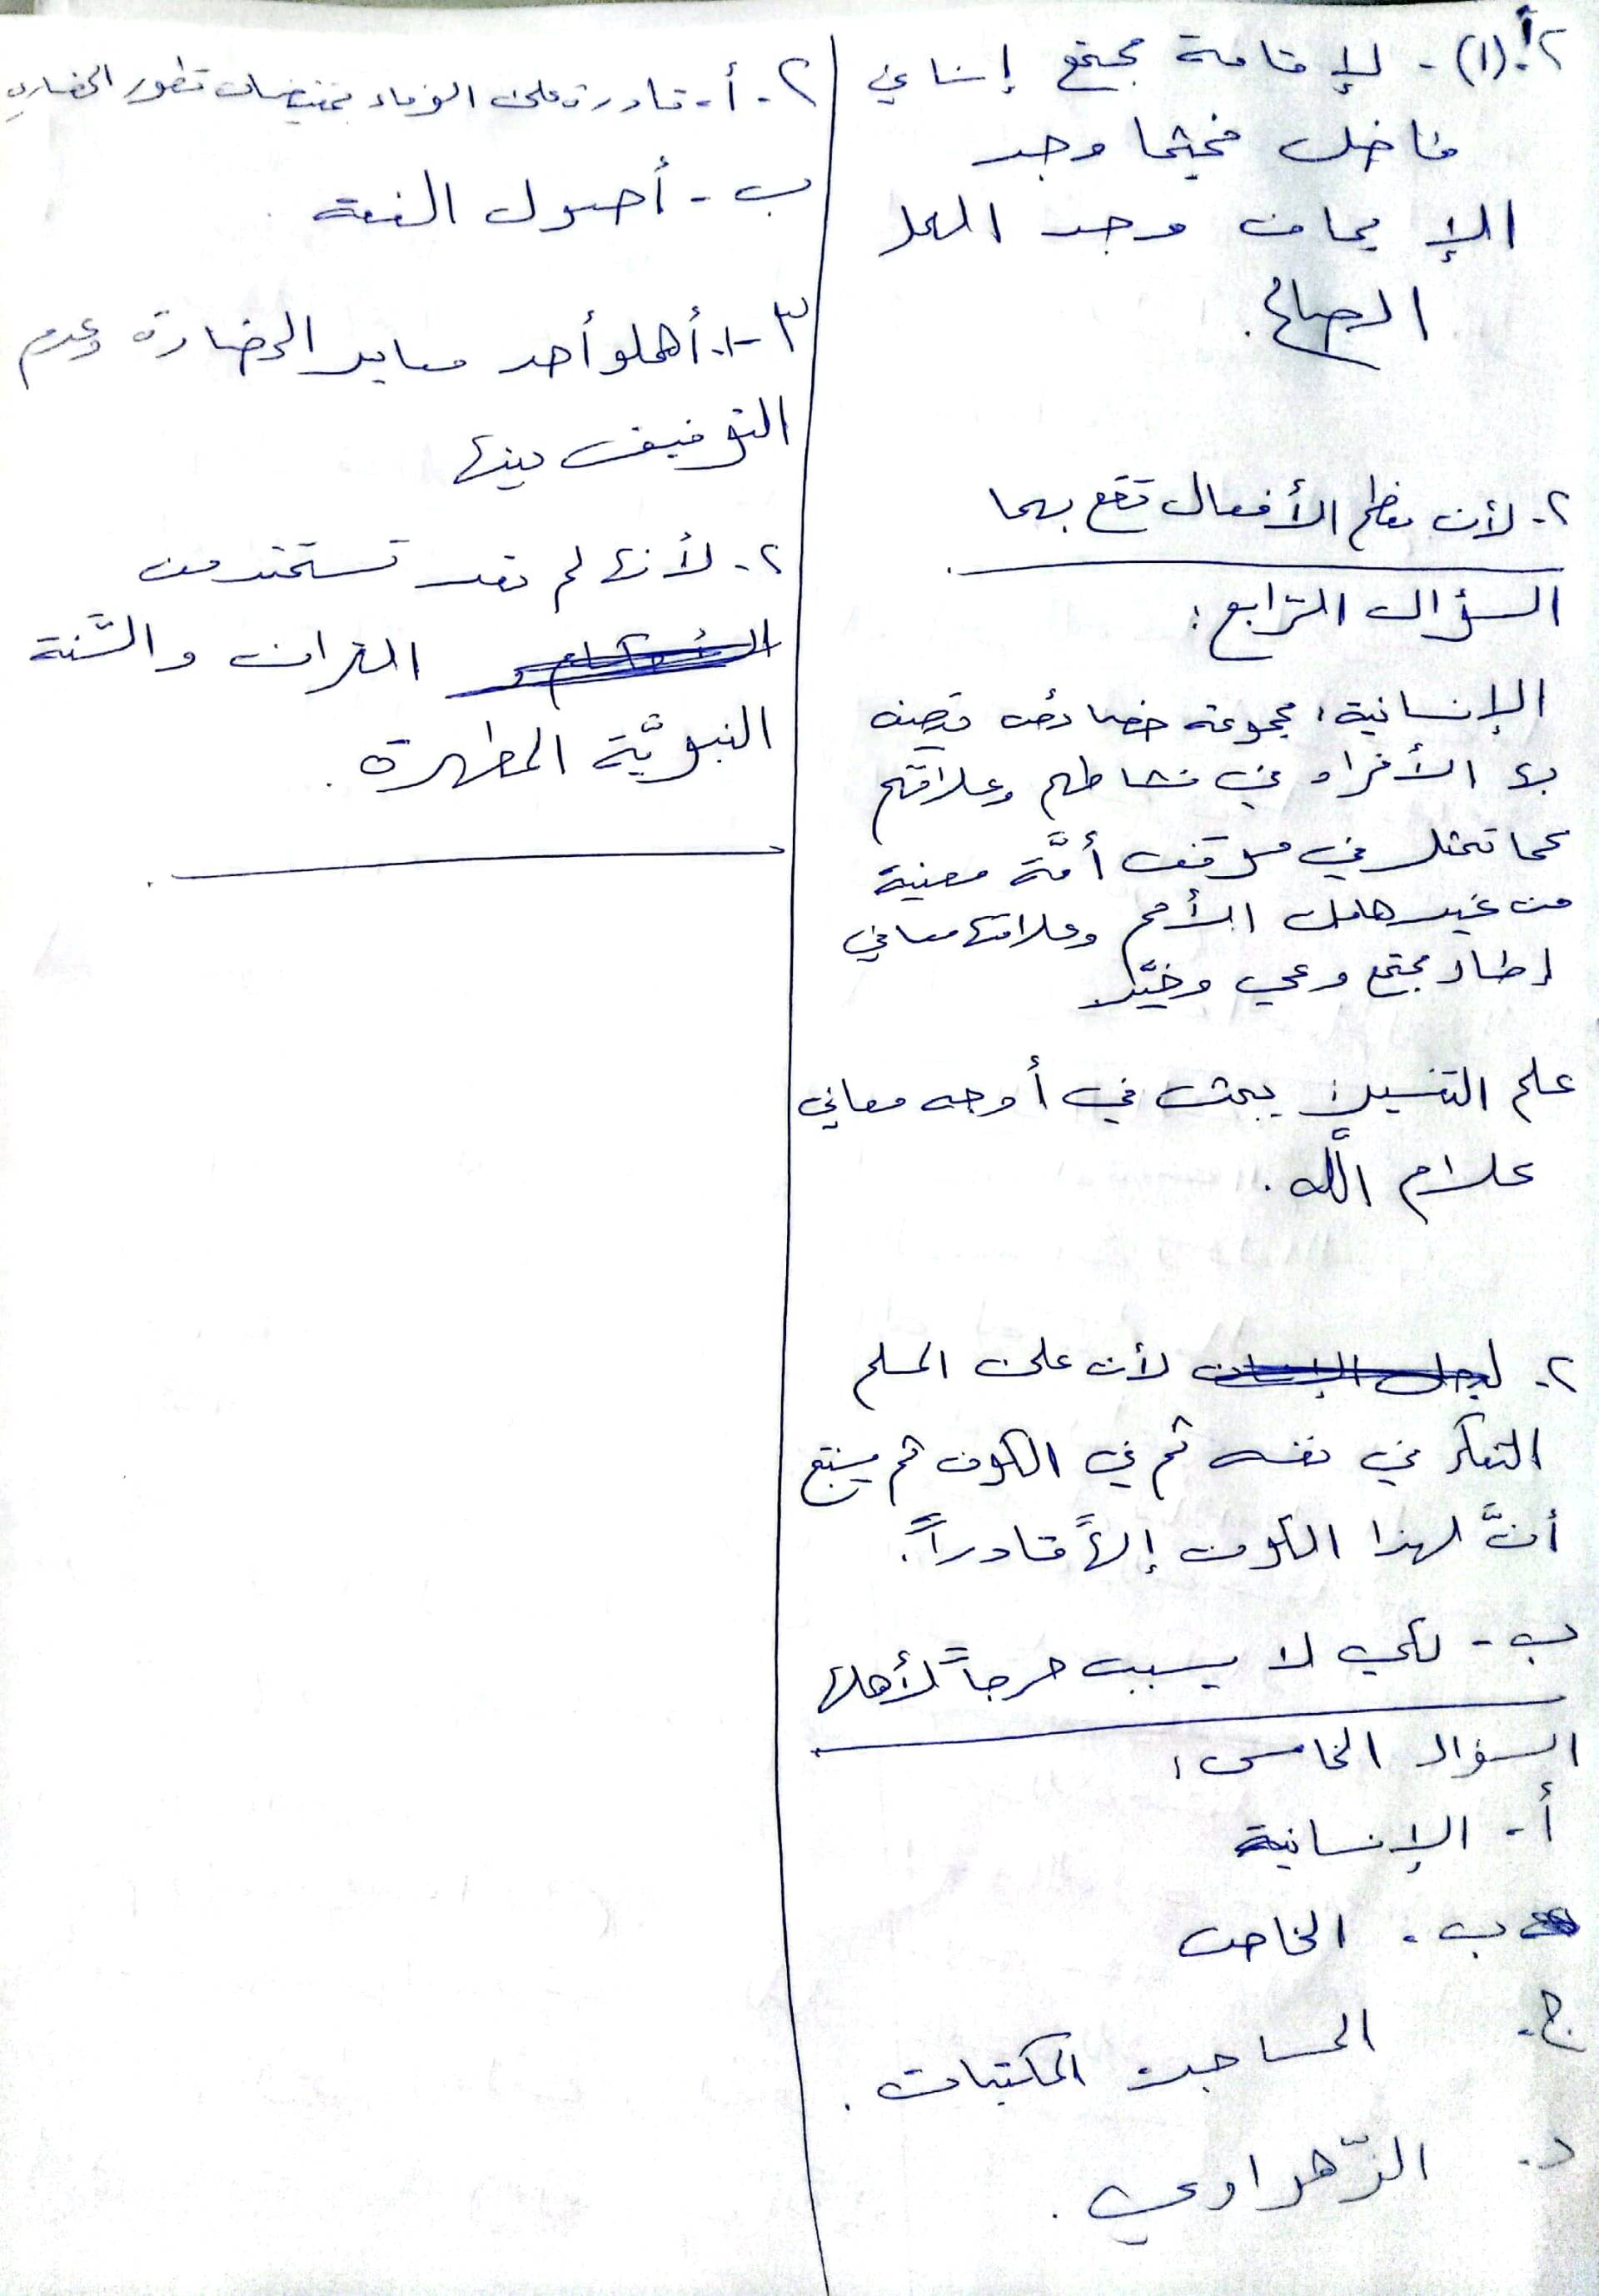 ٢.أ (١) - لإقامة مجتمع إنساني
فاضل فحيثما وجد
الإيمان وجد العمل
الصالح.
٢- لأن معظم الأفعال تقع بهما
السؤال الرابع:
الإنسانية: مجموعة خصائص تصف
بها الأفراد في نشاطهم وعلاقتهم
كما تتمثل في موقف أمَّة معينة
من غيرها من الأمم وعلاقتها معا في
إطار مجتمع وعي وخيّر
علم التفسير: يبحث في أوجه معاني
كلام الله.
٢. لأن على المسلم
التفكر في نفسه ثم في الكون ثم يستنتج
أنَّ لهذا الكون إلهاً قادراً.
ب - لكي لا يسبب حرجاً لأهلها
السؤال الخامس:
أ - الإنسانية
ب. الخاص
ج. المساجد المكتبات.
د. الزّهراوي.
٢ - أ - قادرة على الوفاء بمقتضيات تطور الحضارة
ب - أصول الفقه
٣ - ١. أهملو أحد معايير الحضارة وعدم
التوفيق بينها
٢. لأنها لم تعد تستمد من
القران والسَّنة
النبويَّة المطهرة.